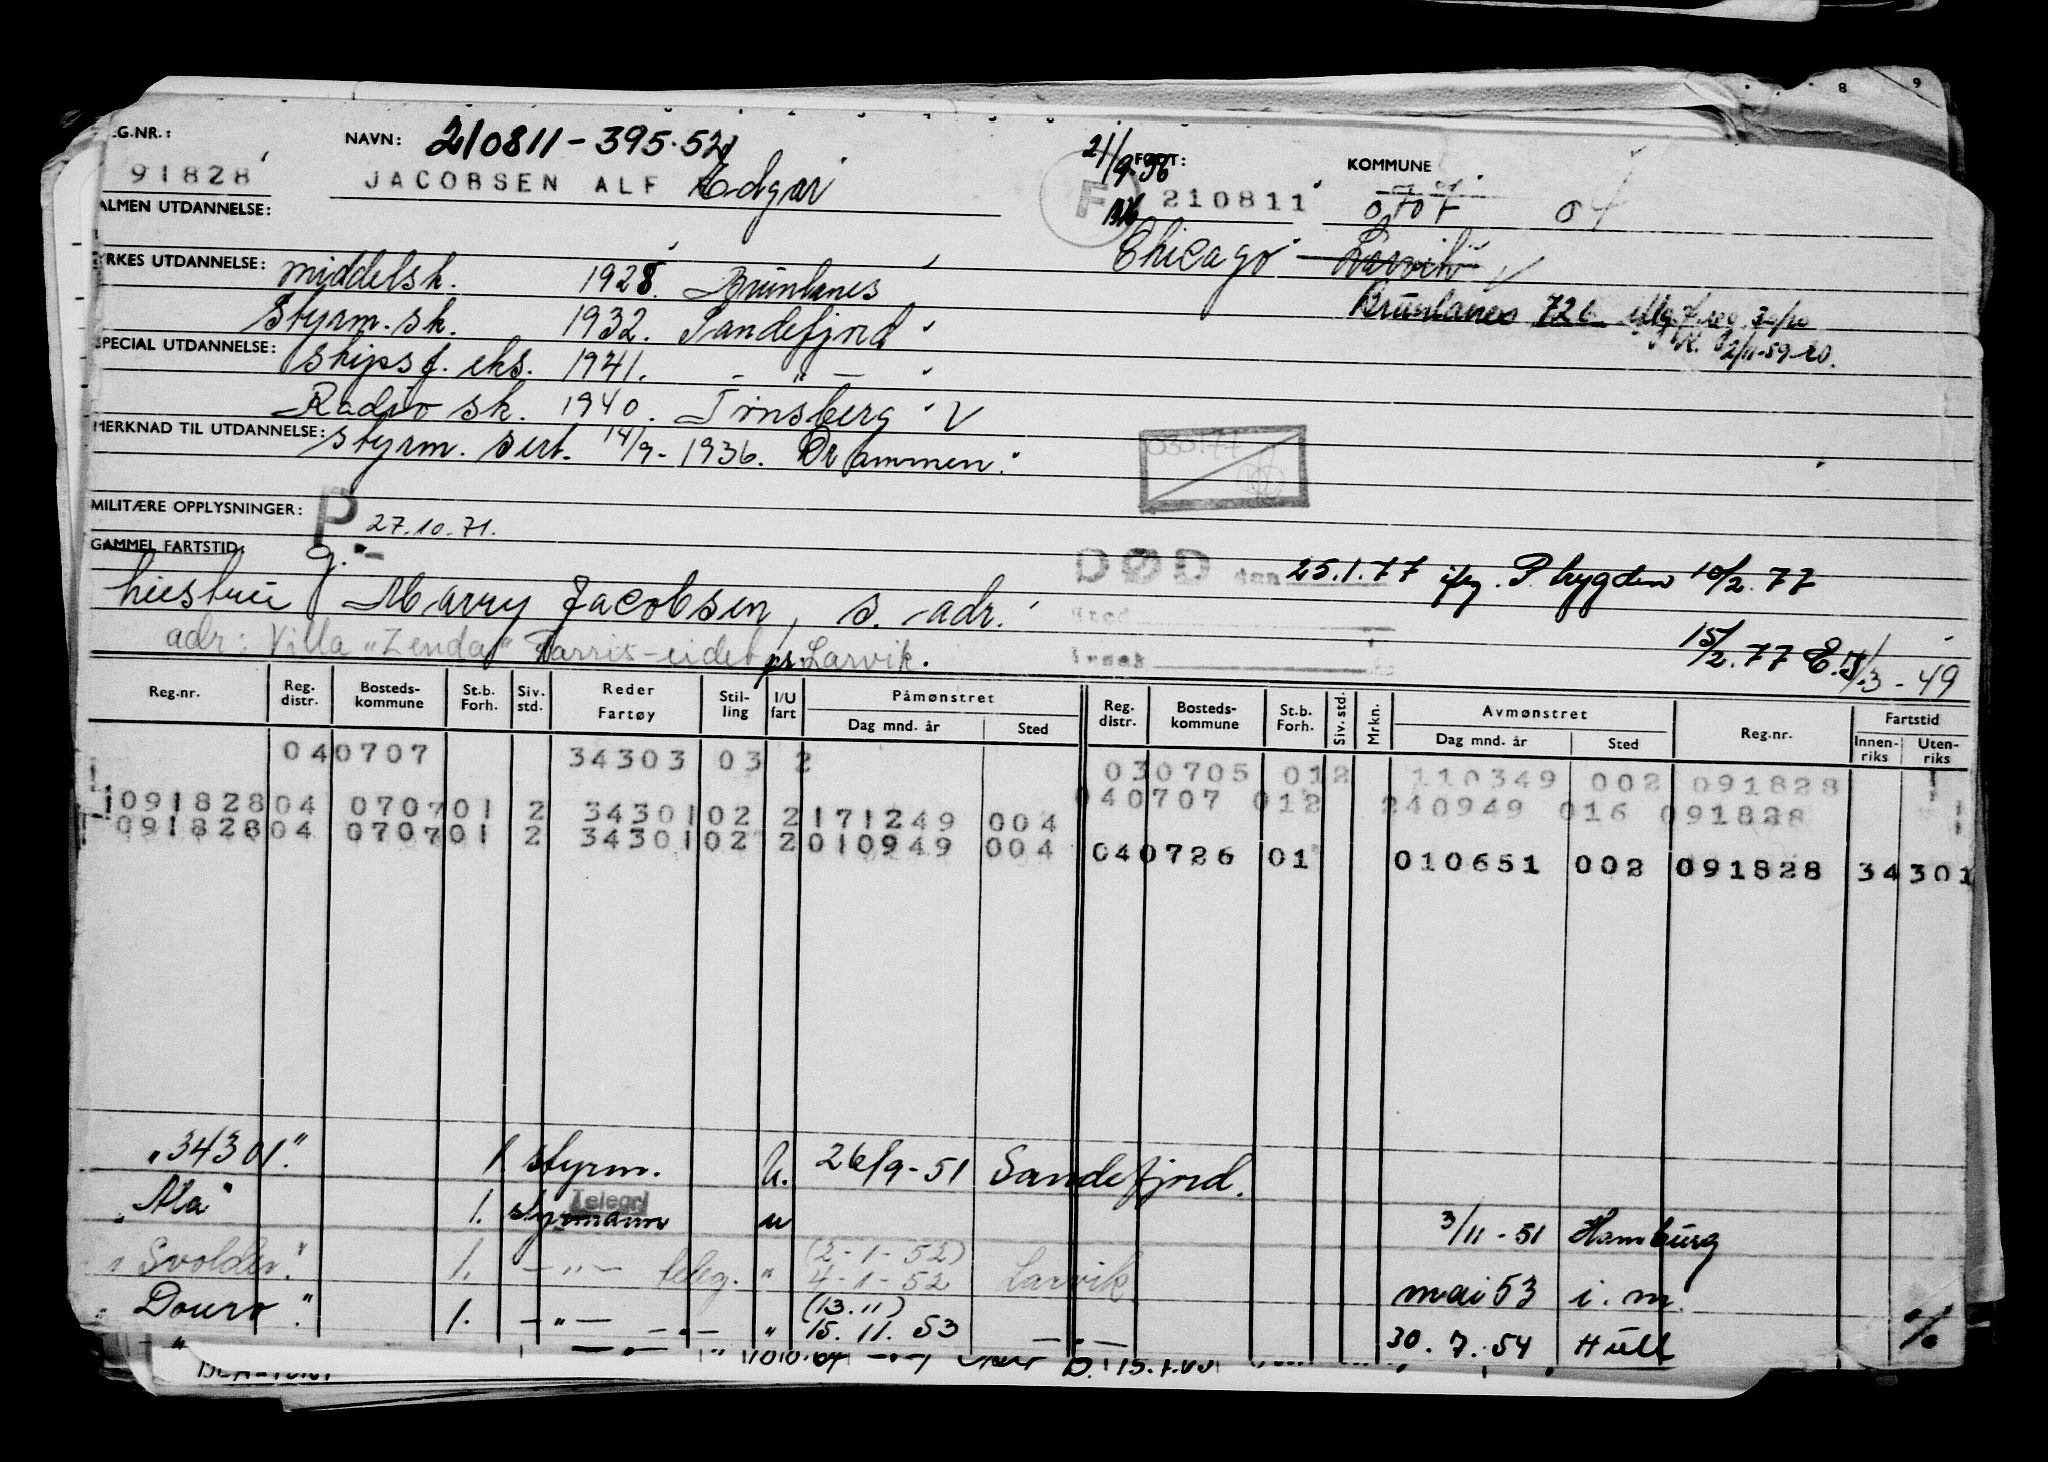 8 9
EG.NR.: NAVN: 210811-395.52 21/9-36 FØDT: KOMMUNE
91828 JACOBSEN ALF Edgar F 210811 0707 04
ALMEN UTDANNELSE: Chicago Larvik
YRKES UTDANNELSE: Middelsk. 1928. Brunlanes Brunlanes 726
Styrm. sk. 1932. Sandefjord 2/11-59
SPECIAL UTDANNELSE: Skipsf. eks. 1941. - " -
Radio sk. 1940. Tønsberg
MERKNAD TIL UTDANNELSE: Styrm. sert. 14/9-1936. Drammen.
MILITÆRE OPPLYSNINGER: P 27.10.71.
GAMMEL FARTSTID: g.
DØD den 25.1.77 ifg. P. trygden 10/2.77
hustru Marry Jacobsen, s. adr.
Sted
adr: Villa "Zenda" Farris-eidet pr. Larvik. Årsak 15/2.77 E.S. /3-49
Reg.nr. Reg. distr. Bosteds-kommune St.b. Forh. Siv. std. Reder Fartøy Stil-ling I/U fart Påmønstret Dag mnd. år Sted Reg. distr. Bosteds-kommune St.b. Forh. Siv. std. Mrkn. Avmønstret Dag mnd. år Sted Reg.nr. Fartstid Innen-riks Uten-riks
040707 34303 03 2 030705 012 110349 002 091828
09182804 070701 2 34301 02 2 171249 004 040707 012 240949 016 091828
09182804 070701 2 34301 02 2 010949 004 040726 01 010651 002 091828 34301
"34301" 1 styrm. U. 26/9-51 Sandefjord.
"Ala" 1. styrmann Telegr u 3/11-51 Hamburg
"Svolder" 1. - " - teleg. " (2-1-52) 4-1-52 Larvik mai 53 i. m.
"Douro" 1. - " - " (13.11) 15.11.53 30.7.54 Hull %